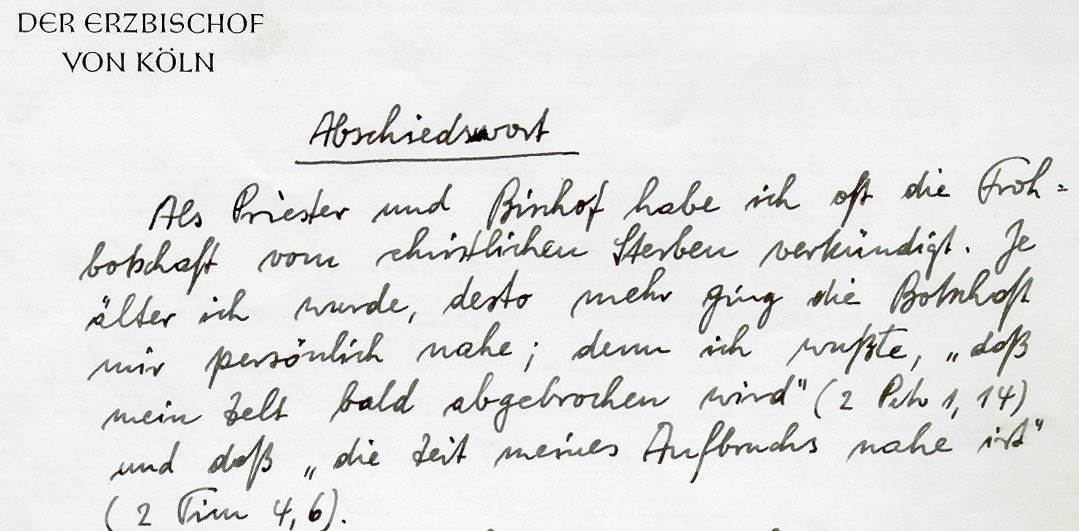 DER ERZBISCHOF
VON KÖLN
Abschiedswort
Als Priester und Bischof habe ich oft die Froh=
botschaft vom christlichen Sterben verkündigt. Je
älter ich wurde, desto mehr ging die Botschaft
mir persönlich nahe; denn ich wußte, „daß
mein Zelt bald abgebrochen wird" (2 Petr 1, 14)
und daß „die Zeit meines Aufbruchs nahe ist"
(2 Tim 4, 6).